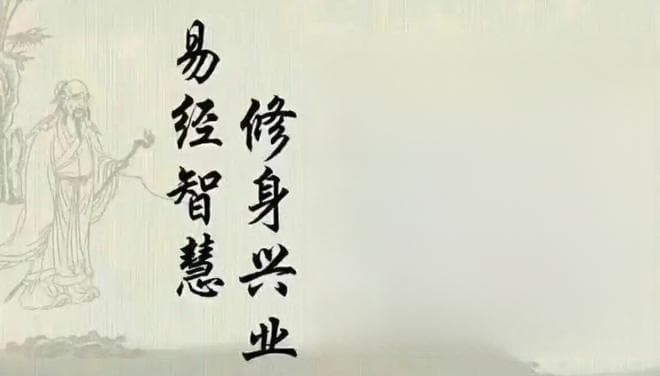 易经智慧
修身兴业